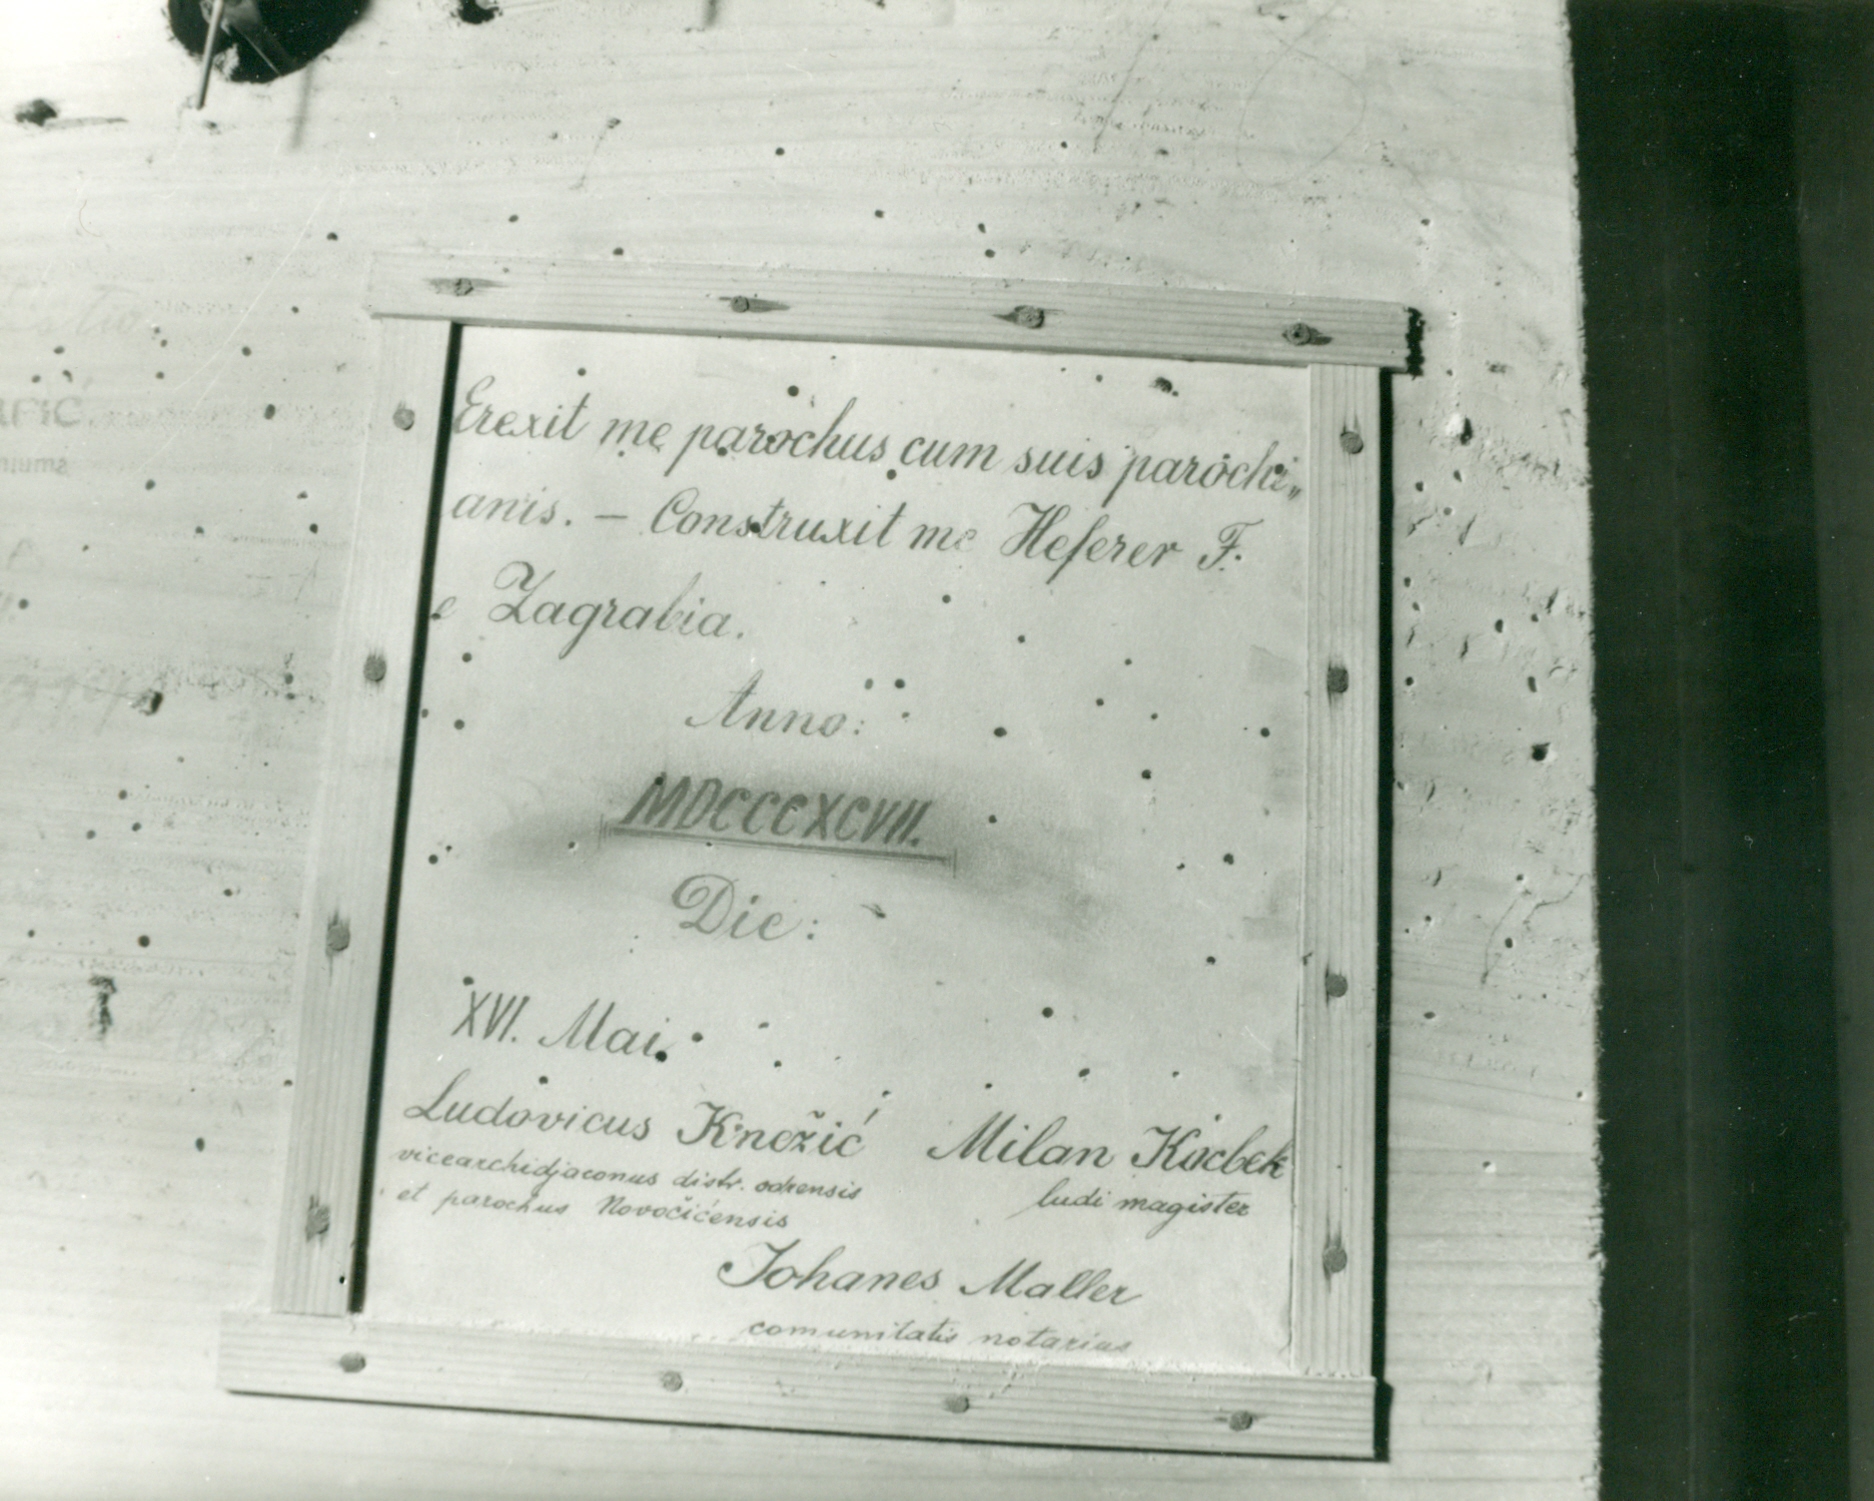 Erexit me parochus cum suis parochi„
anis. — Construxit me Heferer F.
e Zagrabia.
Anno:
MDCCCXCVII.
Die:
XVI. Mai.
Ludovicus Knežić
vicearchidjaconus distr. odrensis
et parochus Novočićensis
Milan Kocbek
ludi magister
Johanes Maller
comunitatis notarius